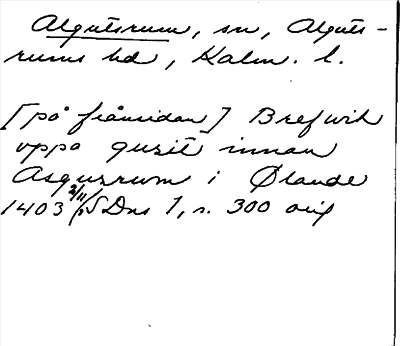 Algutsrum, sn, Alguts-
rums hd, Kalm. l.
[på frånsidan] Bref wih
uppa guzit innan
Asguzrum i Ølande
1403 2/11 SDns 1, s. 300 orig